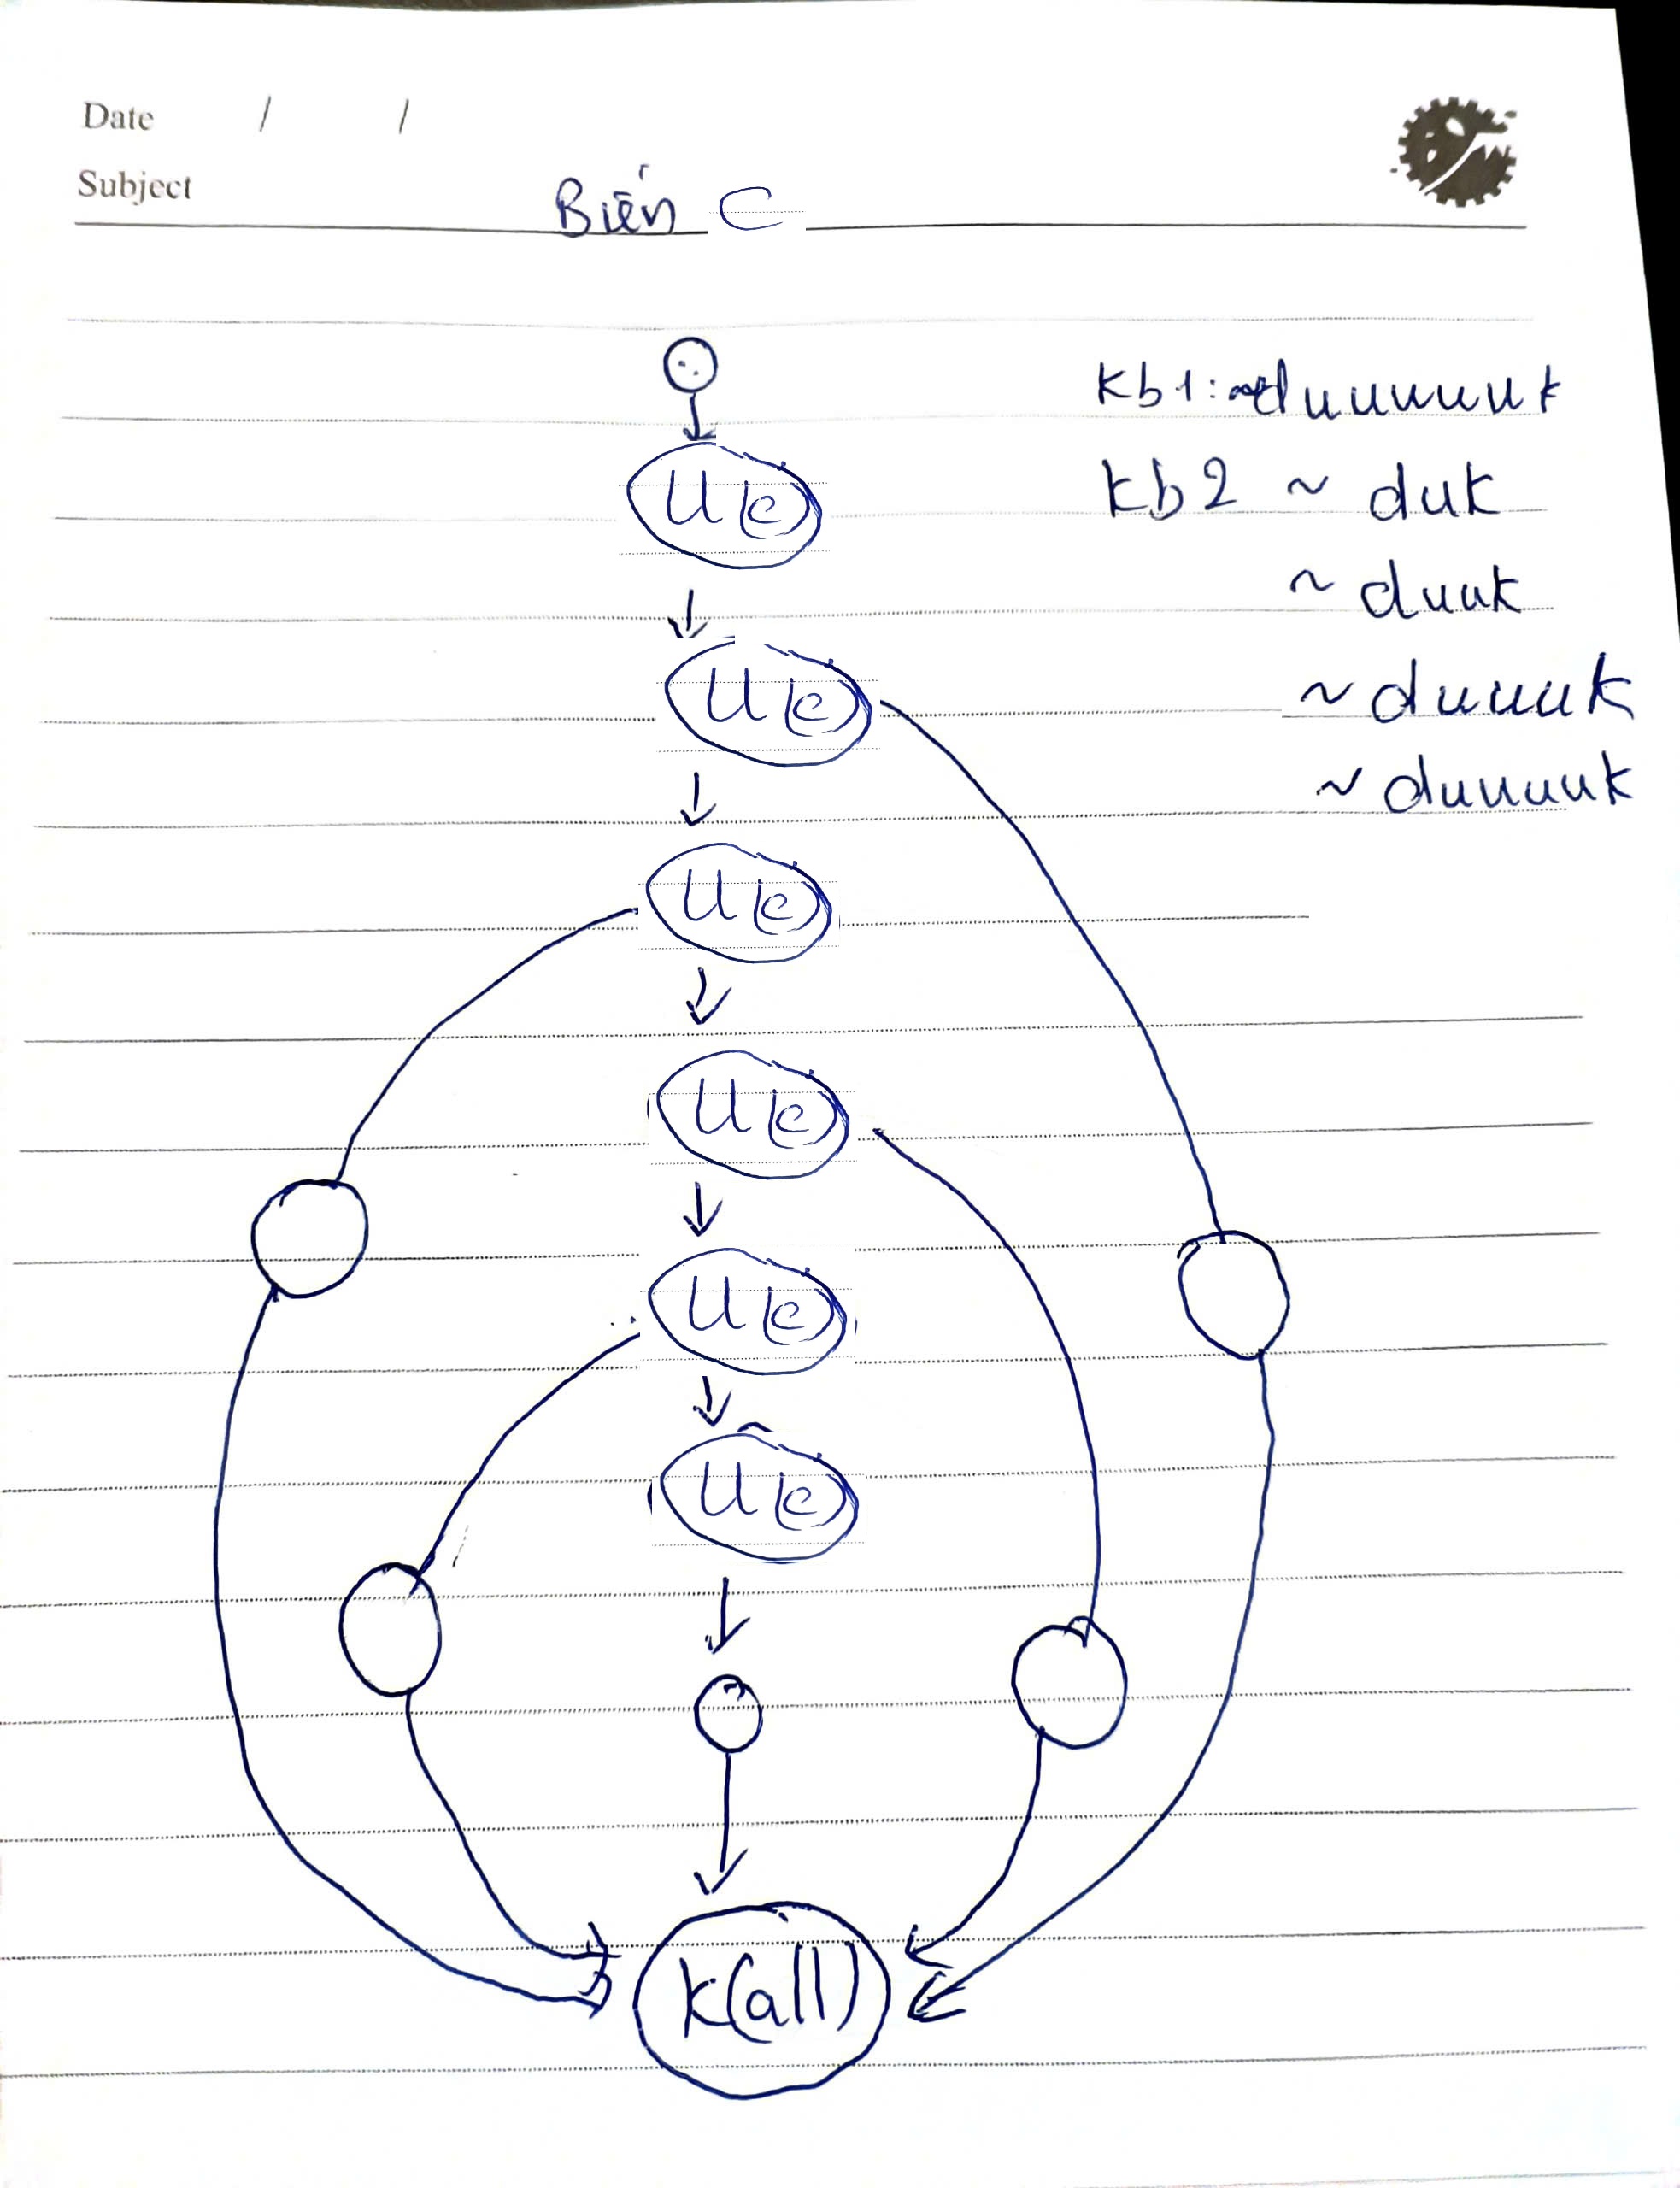 Date / /
Subject
Biến C
kb1: ~duuuuuk
kb2 ~ duk
~ duuk
~ duuuk
~ duuuuk
U(c)
U(c)
U(c)
U(c)
U(c)
U(c)
k(all)